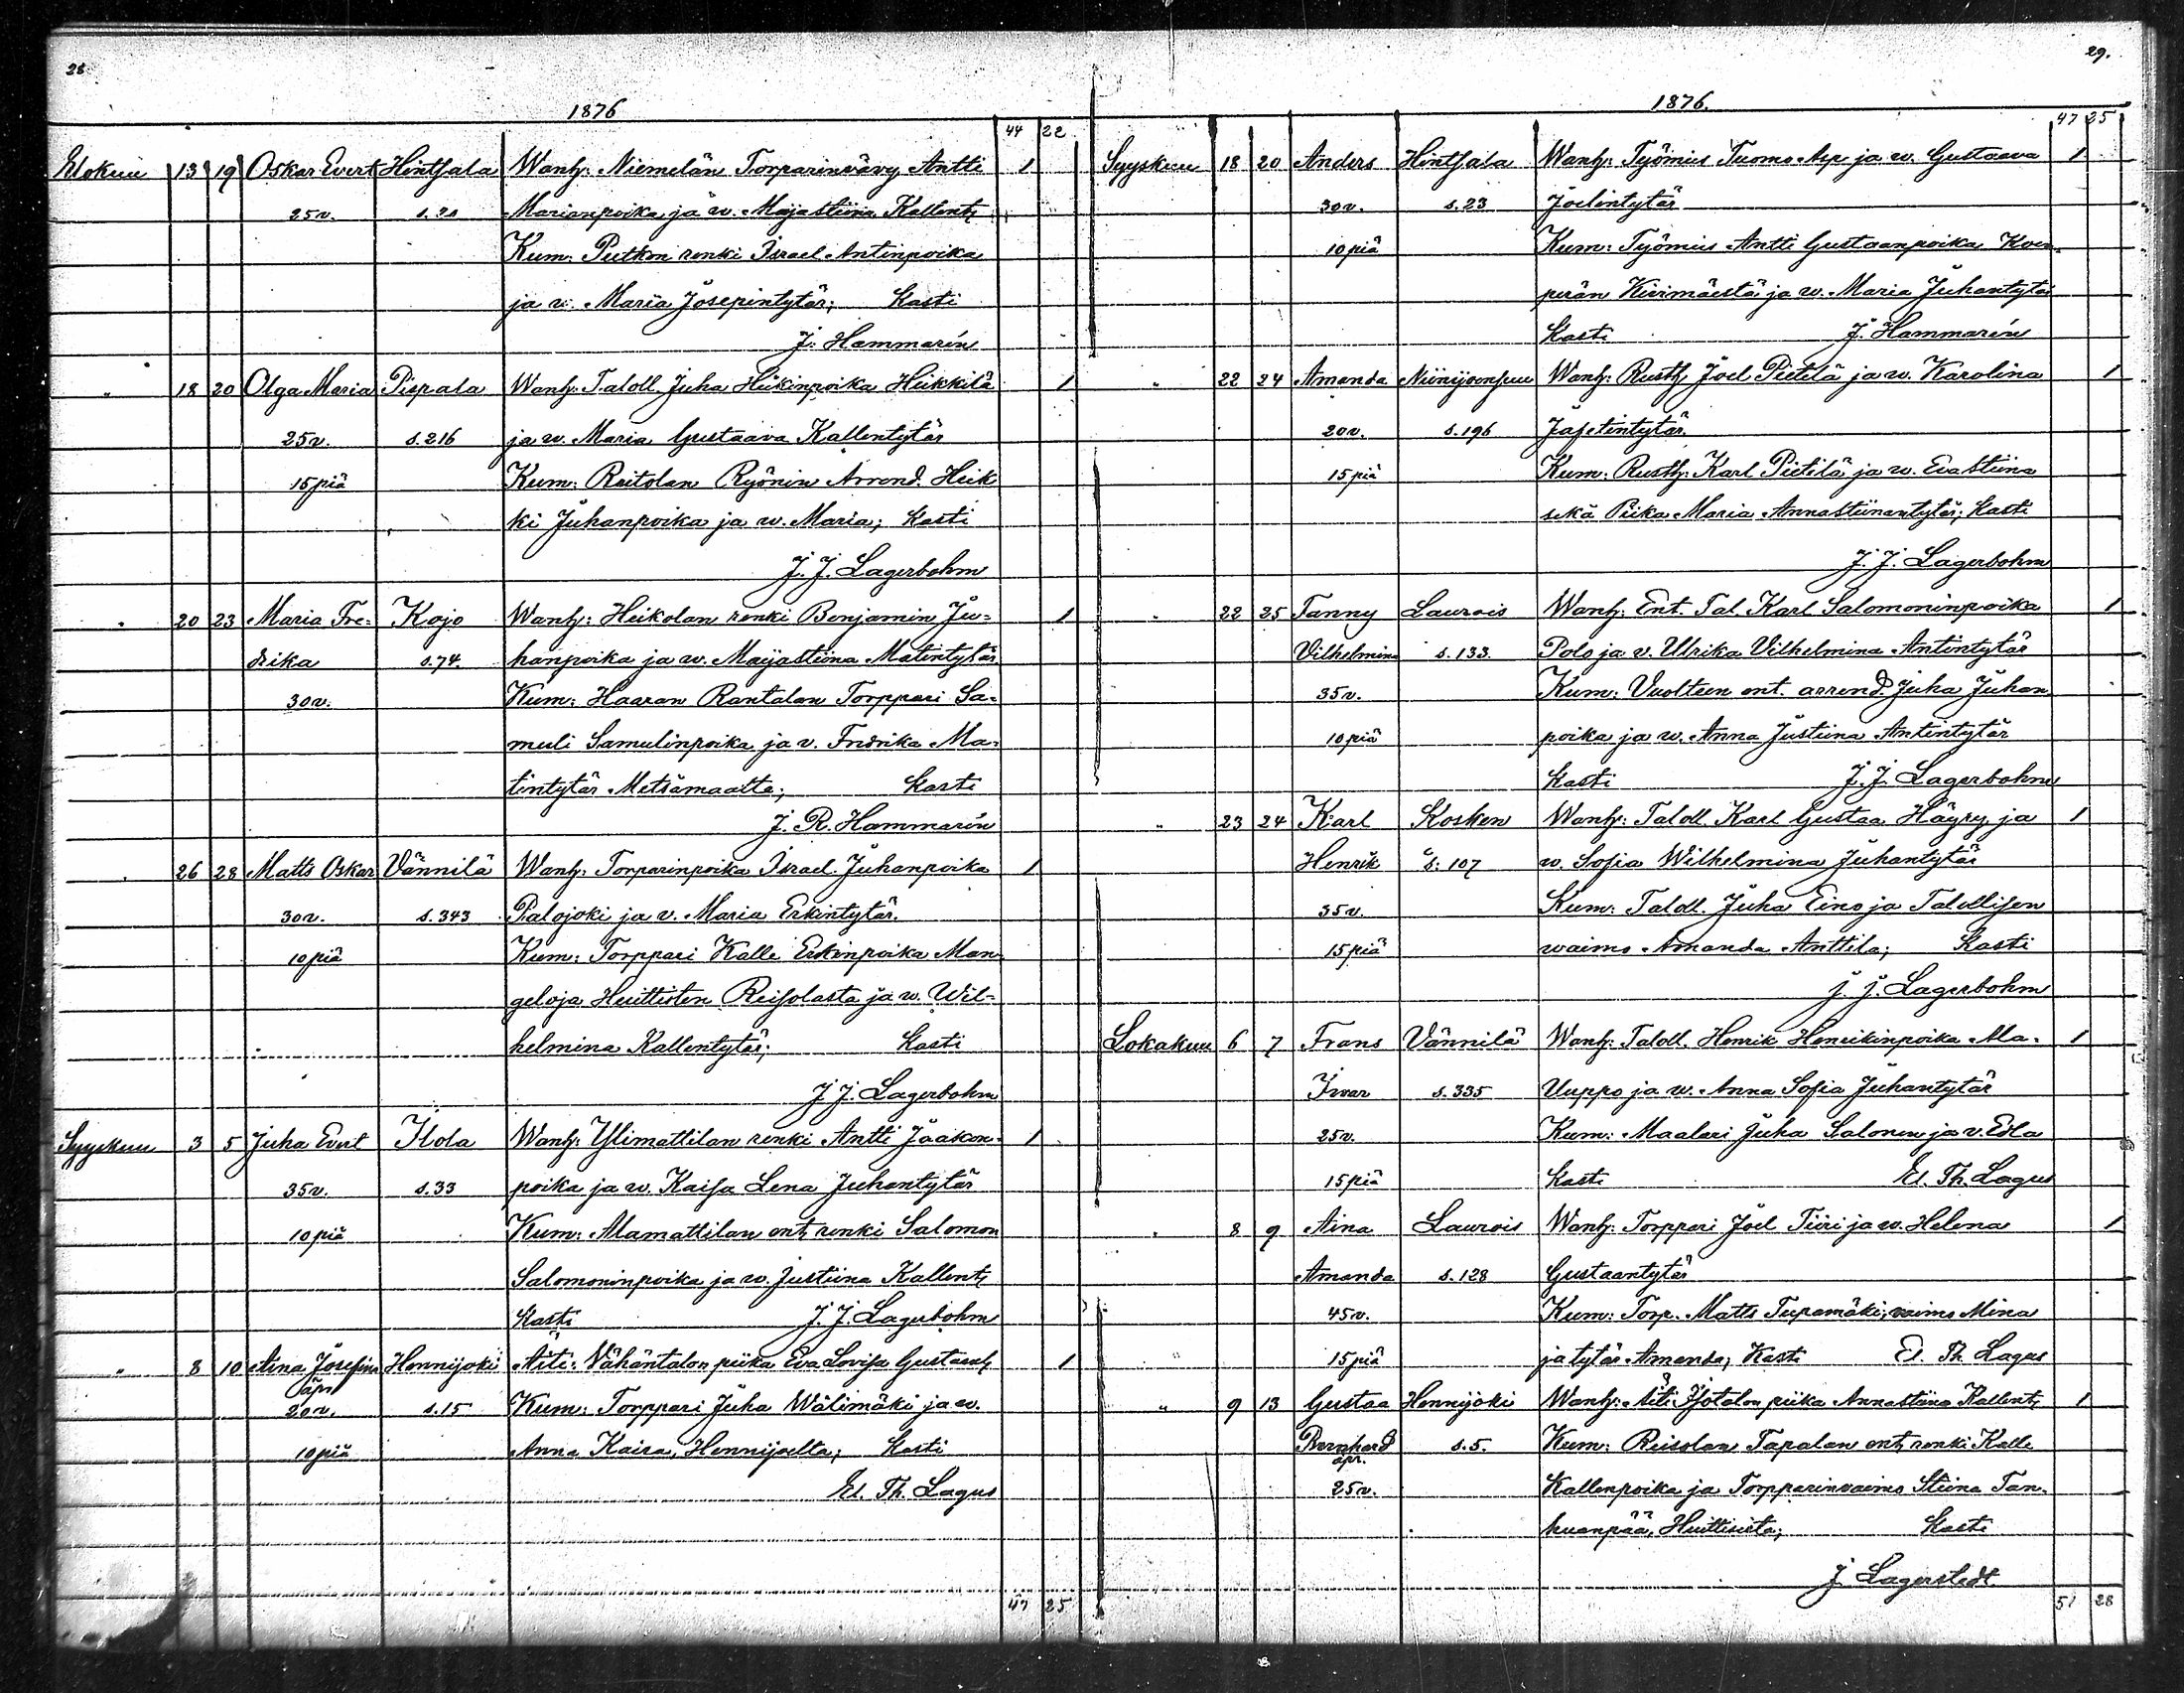 28
1876
44 22
Elokuu 13 19 Oskar Evert Hintsala Wanh: Niemelän Torparinvävy Antti 1
25v. s. 21 Marianpoika ja w. Maja Stiina Kallent.
Kum: Putkon renki Israel Antinpoika
ja v. Maria Josepintytär; Kasti
J. Hammarén
" 18 20 Olga Maria Pispala Wanh: Taloll. Juha Heikinpoika Heikkilä 1
25v. s. 216 ja w. Maria Gustaava Kallentytär
15 piä Kum: Raitolan Ryönin Arrend. Heik
ki Juhanpoika ja w. Maria; Kasti
J. J. Lagerbohm
" 20 23 Maria Fre= Kojo Wanh: Heikolan renki Benjamin Ju= 1
drika s. 74. hanpoika ja w. Maijastiina Matintytär
30v. Kum: Haaran Rantalan Torppari Sa=
muli Samulinpoika ja v. Fredrika Ma=
tintytär Metsämaalta; Kasti
J. R. Hammarén
" 26 28 Matts Oskar Vännilä Wanh: Torparinpoika Israel Juhanpoika 1
30v. s. 343 Palojoki ja v. Maria Erkintytär.
10 piä Kum: Torppari Kalle Erkinpoika Man
geloja Huittisten Reisolasta ja w. Wil=
helmina Kallentytär; Kasti
J. J. Lagerbohm
Syyskuu 3 5 Juha Evert Ilola Wanh: Ylimattilan renki Antti Jaakon= 1
35v. s. 33 poika ja w. Kaisa Lena Juhantytär
10 piä Kum: Alamattilan ent. renki Salomon
Salomoninpoika ja w. Justiina Kallent.
Kasti J. J. Lagerbohm
" 8 10 Aina Josefina Honnijoki Äiti: Vähäntalon piika Eva Lovisa Gustaat. 1
äpr.
20v. s. 15 Kum: Torppari Juha Wälimäki ja w.
10 piä Anna Kaisa, Hennijoelta; Kasti
El. Th. Lagus
47 25
29.
1876.
47 25
Syyskuu 18 20 Anders Hintsala Wanh: Työmies Tuomo Asp ja w. Gustaava 1
30v. s. 23 Joelintytär
10 piä Kum: Työmies Antti Gustaanpoika Koen=
perän Kivimäestä ja w. Maria Juhantytär
Kasti J. Hammarén
" 22 24 Amanda Niinijoensuu Wanh: Rusth. Joel Pietilä ja w. Karolina 1
20v. s. 196 Jafetintytär.
15 piä Kum: Rusth: Karl Pietilä ja w. Eva Stiina
sekä Piika Maria Annastiinantytär; Kasti
J. J. Lagerbohm
" 22 25 Fanny Laurois Wanh: Ent. Tal. Karl Salomoninpoika 1
Vilhelmina s. 133. Polo ja v. Ulrika Vilhelmina Antintytär
35v. Kum: Vuolteen ent. arrend. Juha Juhan
10 piä poika ja w. Anna Justiina Antintytär
Kasti J. J. Lagerbohm
" 23 24 Karl Kosken Wanh: Taloll. Karl Gustaa Häyry ja 1
Henrik s: 107 w. Sofia Wilhelmina Juhantytär
35v. Kum: Taloll. Juha Eino ja Talollisen
15 piä waimo Amanda Anttila; Kasti
J. J. Lagerbohm
Lokakuu 6 7 Frans Vännilä Wanh: Taloll. Henrik Henrikinpoika Ala= 1
Ivar s. 335 Uuppo ja w. Anna Sofia Juhantytär
25v. Kum: Maalari Juha Salonen ja v. Edla
15 piä Kasti El. Th. Lagus
" 8 9 Aina Laurois Wanh: Torppari Joel Tiiri ja w. Helena 1
Amanda s. 128 Gustaantytär
45v. Kum: Torp. Matts Tupamäki, vaimo Mina
15 piä ja tytär Amanda, Kasti El. Th. Lagus
" 9 13 Gustaa Honnijoki Wanh: Äiti: Isotalon piika Annastiina Kallent. 1
Bernhard s. 5. Kum: Reisolan Tapalan ent. renki Kalle
äpr.
25v. Kallenpoika ja Torpparinvaimo Stiina Tan=
huanpää, Huittisista; Kasti
J. Lagerstedt.
51 28